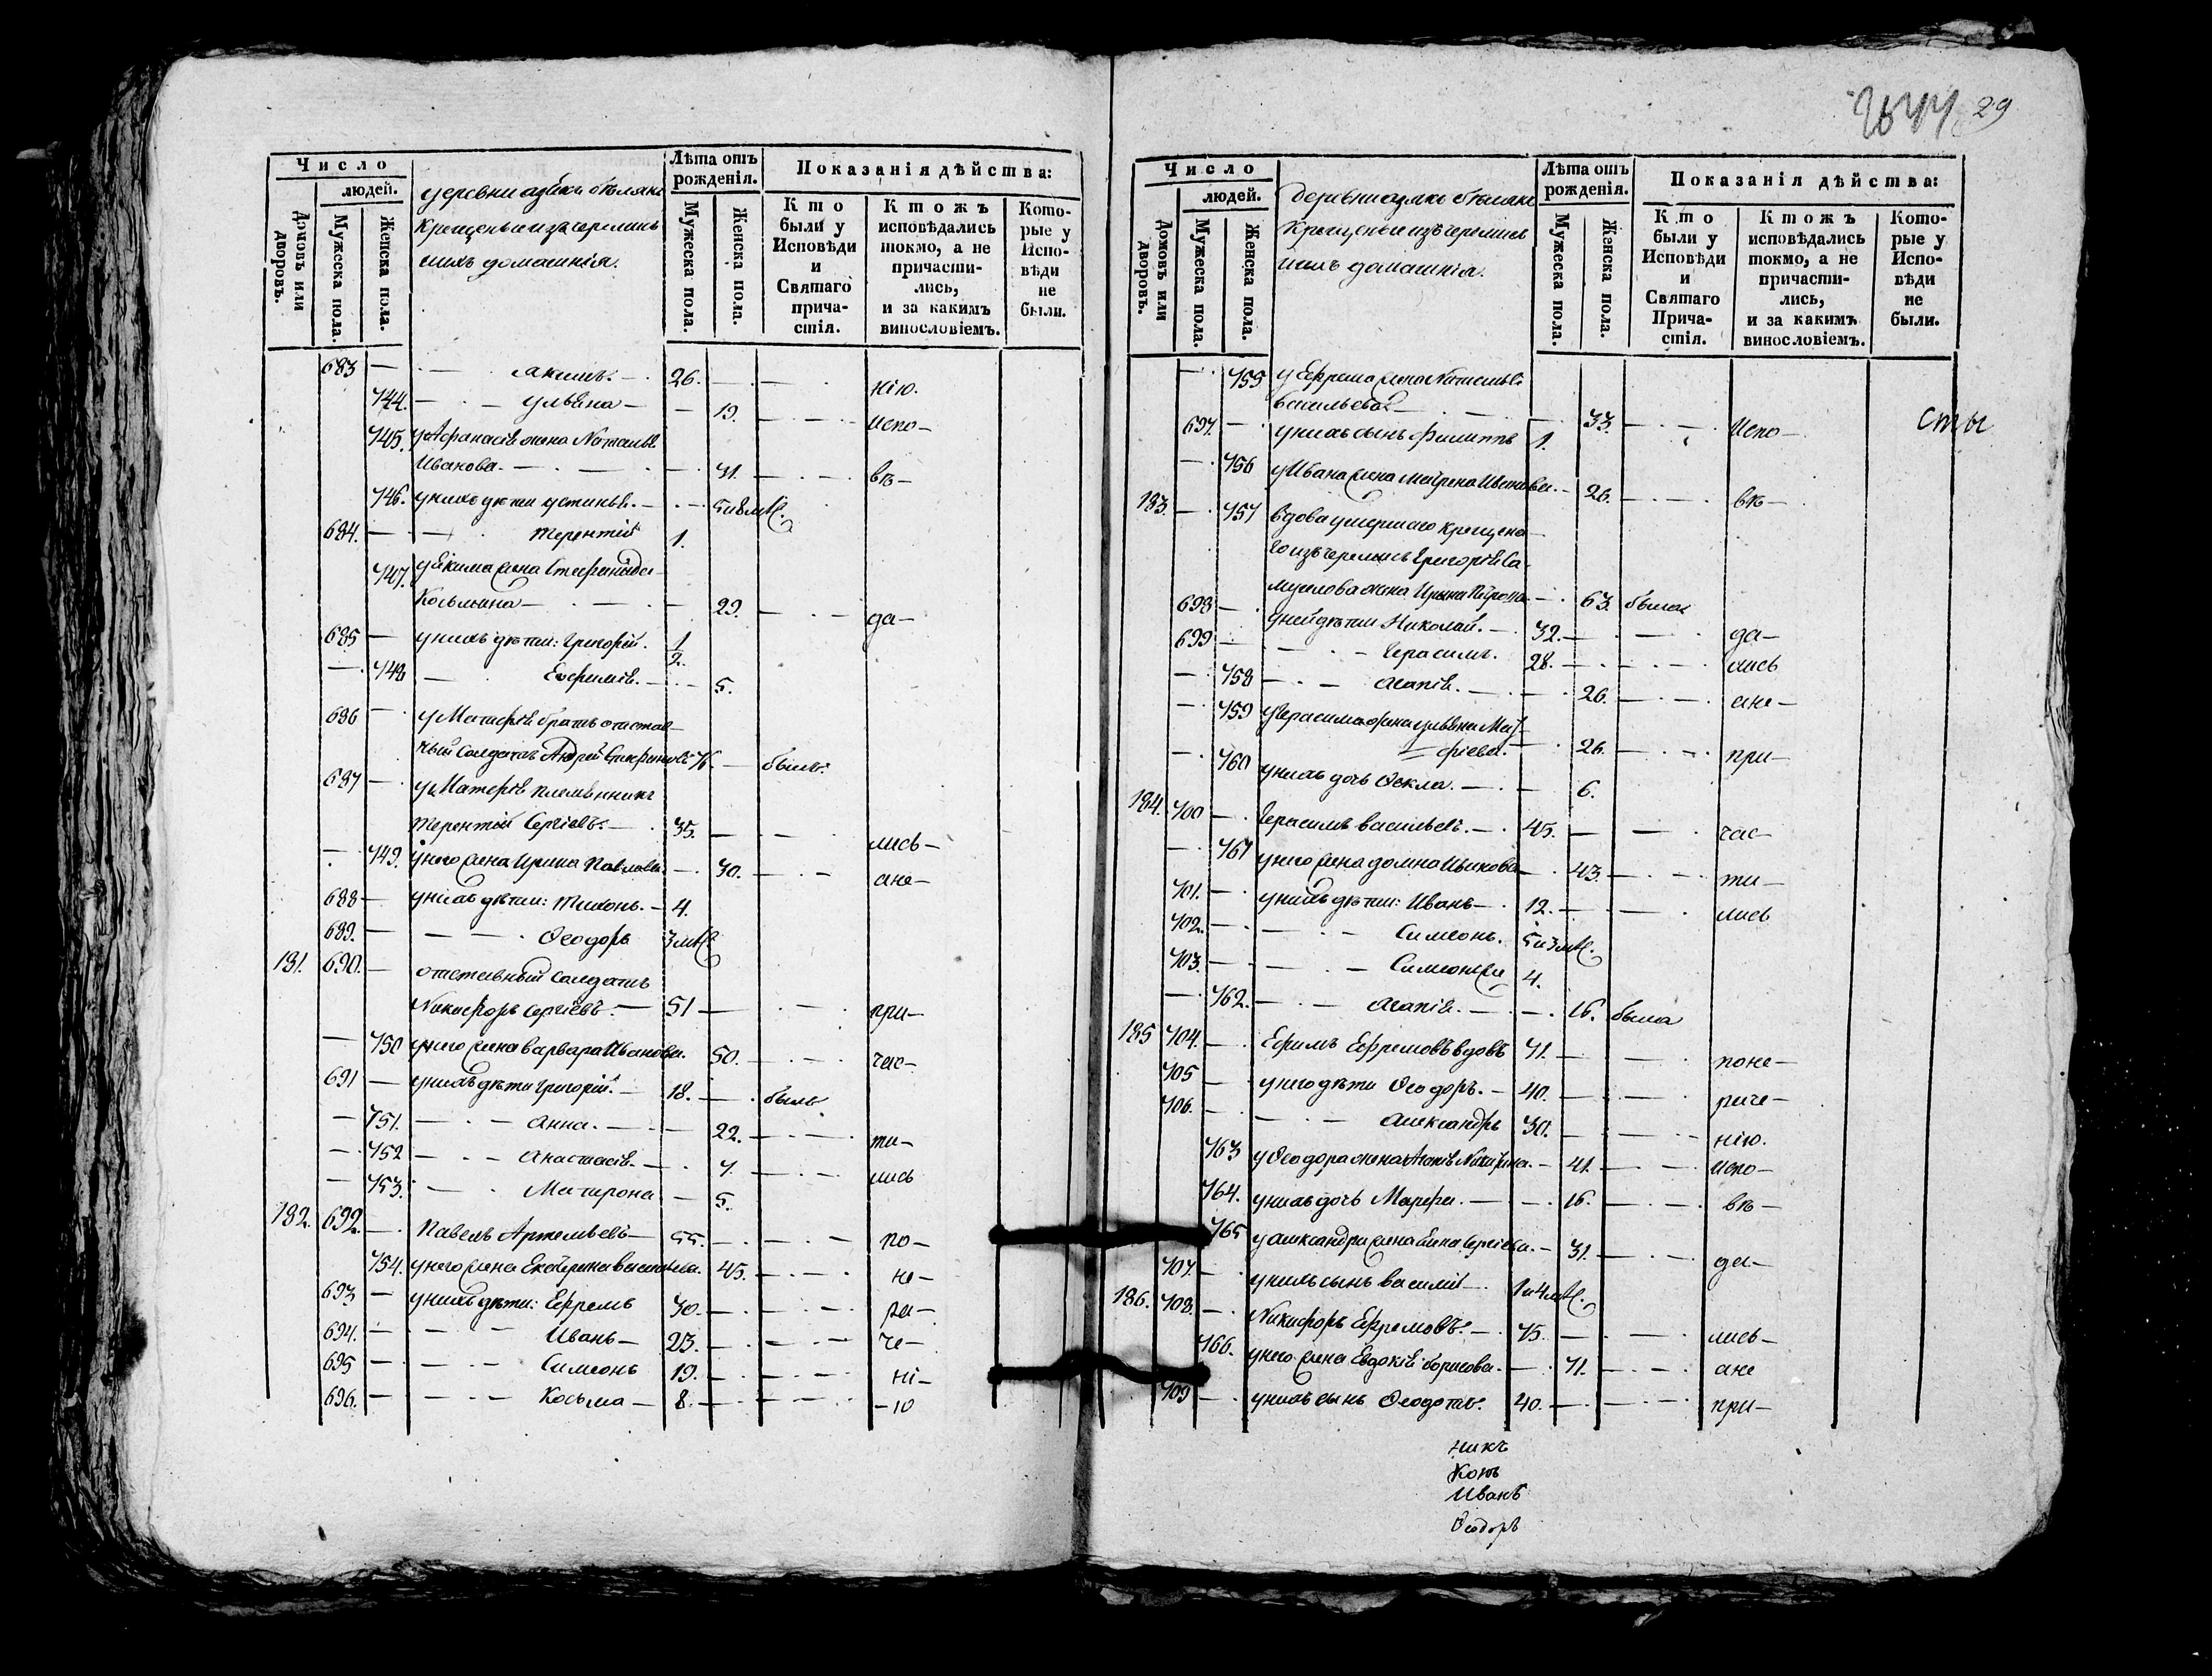 29
Число
людей.
Домовъ или дворовъ.
Мужеска пола.
Женска пола.
крещеные изъ черемисъ
ихъ домашнія.
Лѣта отъ рожденія.
Мужеска пола.
Женска пола.
Показанія дѣйства:
Кто были у Исповѣди и Святаго причастія.
Ктожъ исповѣдались токмо, а не причастились, и за какимъ винословіемъ.
Которые у Исповѣди не были.
683 — Акимъ. — 26. — нію.
744. — Ульяна — 19. — испо—
745. у Афанасія жена Наталья
Иванова. — 41. — вѣ—
746. у нихъ дѣти Устинья. — 5 и 8 мѣс.
684. — Терентій 1.
747. у Екима жена Стефанида
Козьмина — 29. — да—
685 — у нихъ дѣти: Григорій. 1/2.
748 — Евфимія. — 5.
686 — у Матфея братъ отстав—
ной солдатъ Андрей 76. — былъ.
687 — у Матфея племянникъ
Терентій Сергіевъ. — 35. — лись—
749. у него жена Ирина Павлова. — 30. — а не—
688 — у нихъ дѣти: Тихонъ. — 4.
689. — Ѳеодоръ 3 мѣс.
181. 690. — отставный солдатъ
Никифоръ Сергіевъ. — 51 — при—
750 у него жена Варвара Иванова. 50. — час—
691 — у нихъ дѣти Григорій. — 18. — былъ
751. — Анна. — 22. — ти—
752 — Анастасія. — 7. — лись
753. — Матрона — 5.
182. 692. — Павелъ Артемьевъ — 55. — по—
754. у него жена Екатерина Васильева. 45. — не—
693 — у нихъ дѣти: Ефремъ 30. — ра—
694. — Иванъ — 23. — че—
695 — Симеонъ 19. — ні—
696. — Козьма — 8. — —ю
Число
людей.
Домовъ или дворовъ.
Мужеска пола.
Женска пола.
крещеные изъ черемисъ
ихъ домашнія.
Лѣта отъ рожденія.
Мужеска пола.
Женска пола.
Показанія дѣйства:
Кто были у Исповѣди и Святаго Причастія.
Ктожъ исповѣдались токмо, а не причастились, и за какимъ винословіемъ.
Которые у Исповѣди не были.
755 у Ефрема жена Наталья
Васильева — 33. — испо— сты
697. — у нихъ сынъ Филиппъ 1.
756 у Ивана жена Матрена — 26. — вѣ—
183. — 757 вдова умершаго крещена—
го изъ черемисъ Григорія Са—
муилова жена Ирина — 63. была
698 — у ней дѣти Николай. — 32. — да—
699 — Герасимъ. 28. — лись
758 — Агапія. — 26. — а не—
759 у Герасима жена Ульяна Мат—
фіева. — 26. — при—
760 у нихъ дочь Ѳекла. — 6.
184. 700 — Герасимъ Васильевъ. — 45. — час—
761 у него жена Домна — 43. — ти—
701. — у нихъ дѣти: Иванъ — 12. — лись
702. — Симеонъ. 5 и 3 мѣс.
703. — 4.
762. — Агапія. — 16. была
185 704. — Ефимъ Ефремовъ вдовъ 71. — по не—
705 — у него дѣти Ѳеодоръ. — 40. — раче—
706. — Александръ 30. — нію.
763 у Ѳеодора жена Агапія Никитина. — 41. — испо—
764. у нихъ дочь Марфа. — 16. — вѣ—
765 у Александра жена Сергіева. — 31. — да—
707. — у нихъ сынъ Василій — 1 и 4 мѣс.
186. 708. — Никифоръ Ефремовъ. — 75. — лись—
766. у него жена Евдокія Борисова. — 71. — а не
709 — у нихъ сынъ Ѳеодотъ. 40. — при—
Иванъ
Ѳеодоръ